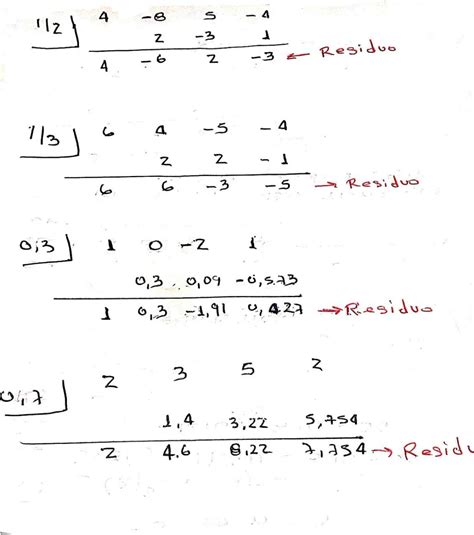 1/2 4 -8 5 -4
2 -3 1
4 -6 2 -3 ← Residuo
1/3 6 4 -5 -4
2 2 -1
6 6 -3 -5 → Residuo
0,3 1 0 -2 1
0,3 0,09 -0,573
1 0,3 -1,91 0,427 → Residuo
0,7 2 3 5 2
1,4 3,22 5,754
2 4.6 8,22 7,754 → Residu